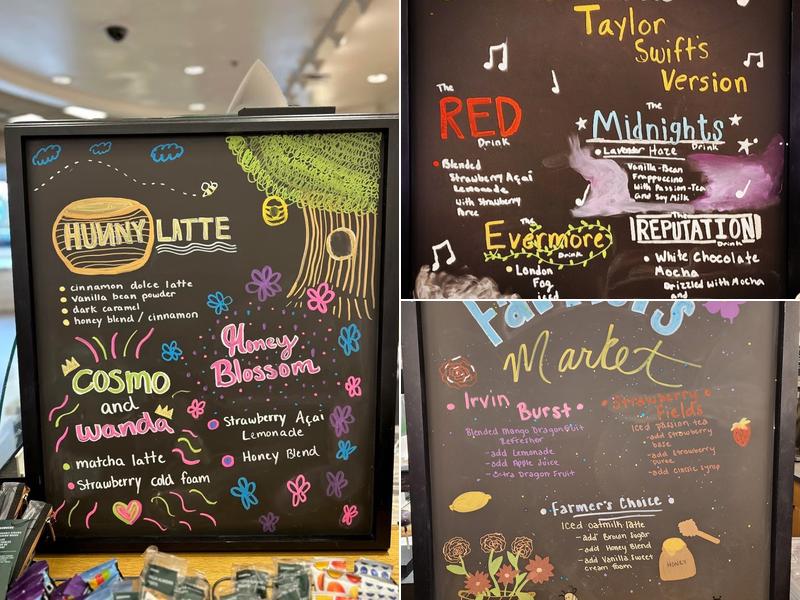 HUNNY LATTE
cinnamon dolce latte
vanilla bean powder
dark caramel
honey blend / cinnamon
COSMO
and
wanda
matcha latte
strawberry cold foam
Honey
Blossom
Strawberry Açaí
Lemonade
Honey Blend
Taylor
Swift's
Version
The
RED
Drink
Blended
Strawberry Açaí
Lemonade
with Strawberry
Puree
The
Midnights
Drink
Lavender Haze
Vanilla-Bean
Frappuccino
with Passion-Tea
and Soy Milk
The
Evermore
Drink
London
Fog
iced
The
REPUTATION
Drink
White Chocolate
Mocha
Drizzled with Mocha
and
Farmers
Market
Irvin
Burst
Blended Mango Dragonfruit
Refresher
-add Lemonade
-add Apple Juice
-Extra Dragon Fruit
Strawberry
Fields
Iced passion tea
-add strawberry
base
-add strawberry
puree
-add classic syrup
Farmer's Choice
Iced oatmilk latte
-add Brown Sugar
-add Honey Blend
-add Vanilla Sweet
cream foam
HONEY